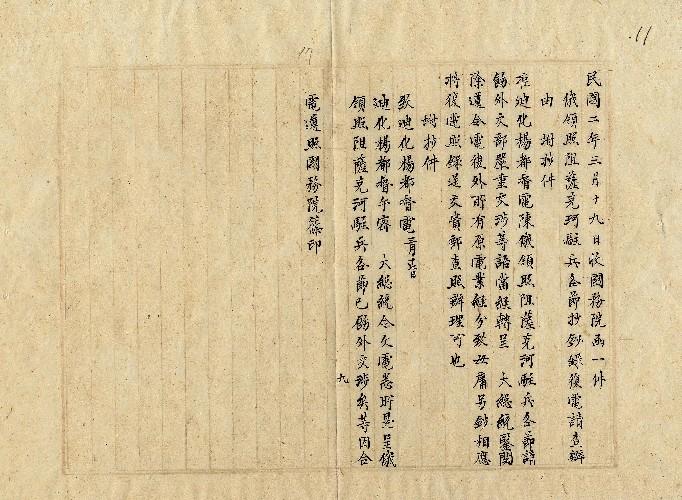 11
17
民國二年三月十九日收國務院函一件
俄領照阻薩克河駐兵各節抄錄復電請查辦
由 附抄件
准迪化楊都督電陳俄領照阻薩克河駐兵各節請
飭外交部嚴重交涉等語當經轉呈 大總統鑒閱
除遵令電復外所有原電業經分致毋庸另鈔相應
將復電照錄送交貴部查照辦理可也
附抄件
致迪化楊都督電
迪化楊都督午密 大總統令文電悉所見呈俄
領照阻薩克河駐兵各節已飭外交涉矣等因合
電遵照國務院篠印
九